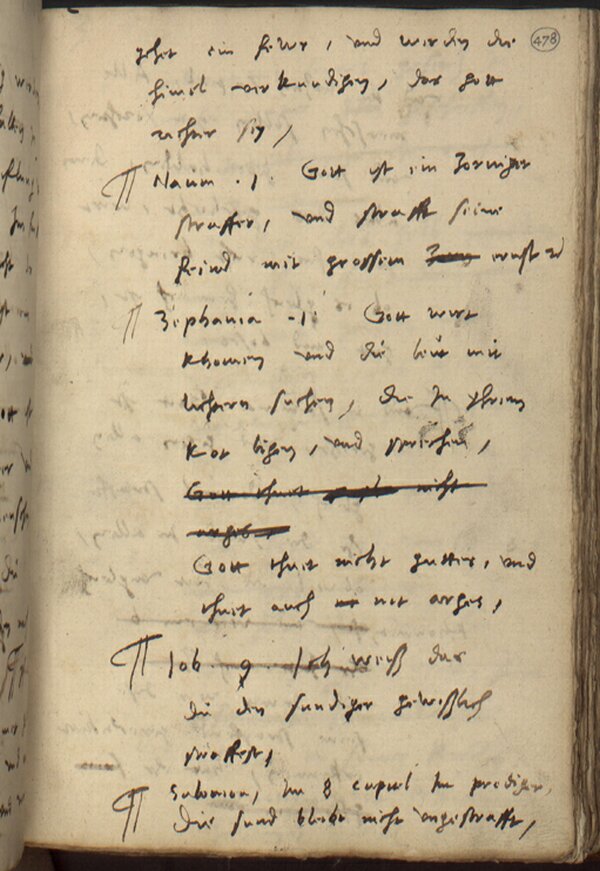 478
gehet ein fewr, und werden die
himel verkundigen, das gott
richter sey,
¶ Naum .1. Gott ist ein zorniger
straffer, und strafft seine
feind mit grossem ernst
¶ Zephania .1. Gott wirt
khomen und die leut mit
lichtern suchen, die In yhrem
kot ligen, und sprechen,
Gott thuet nicht
arges,
Gott thuet nicht guttes, und
thuet auch not arges,
¶ Iob . 9 . Ich weiß das
du den sundiger gewißlich
straffest,
¶ Salomon, Im 8 capitel Im prediger,
Die sund bleibt nicht ungestrafft,